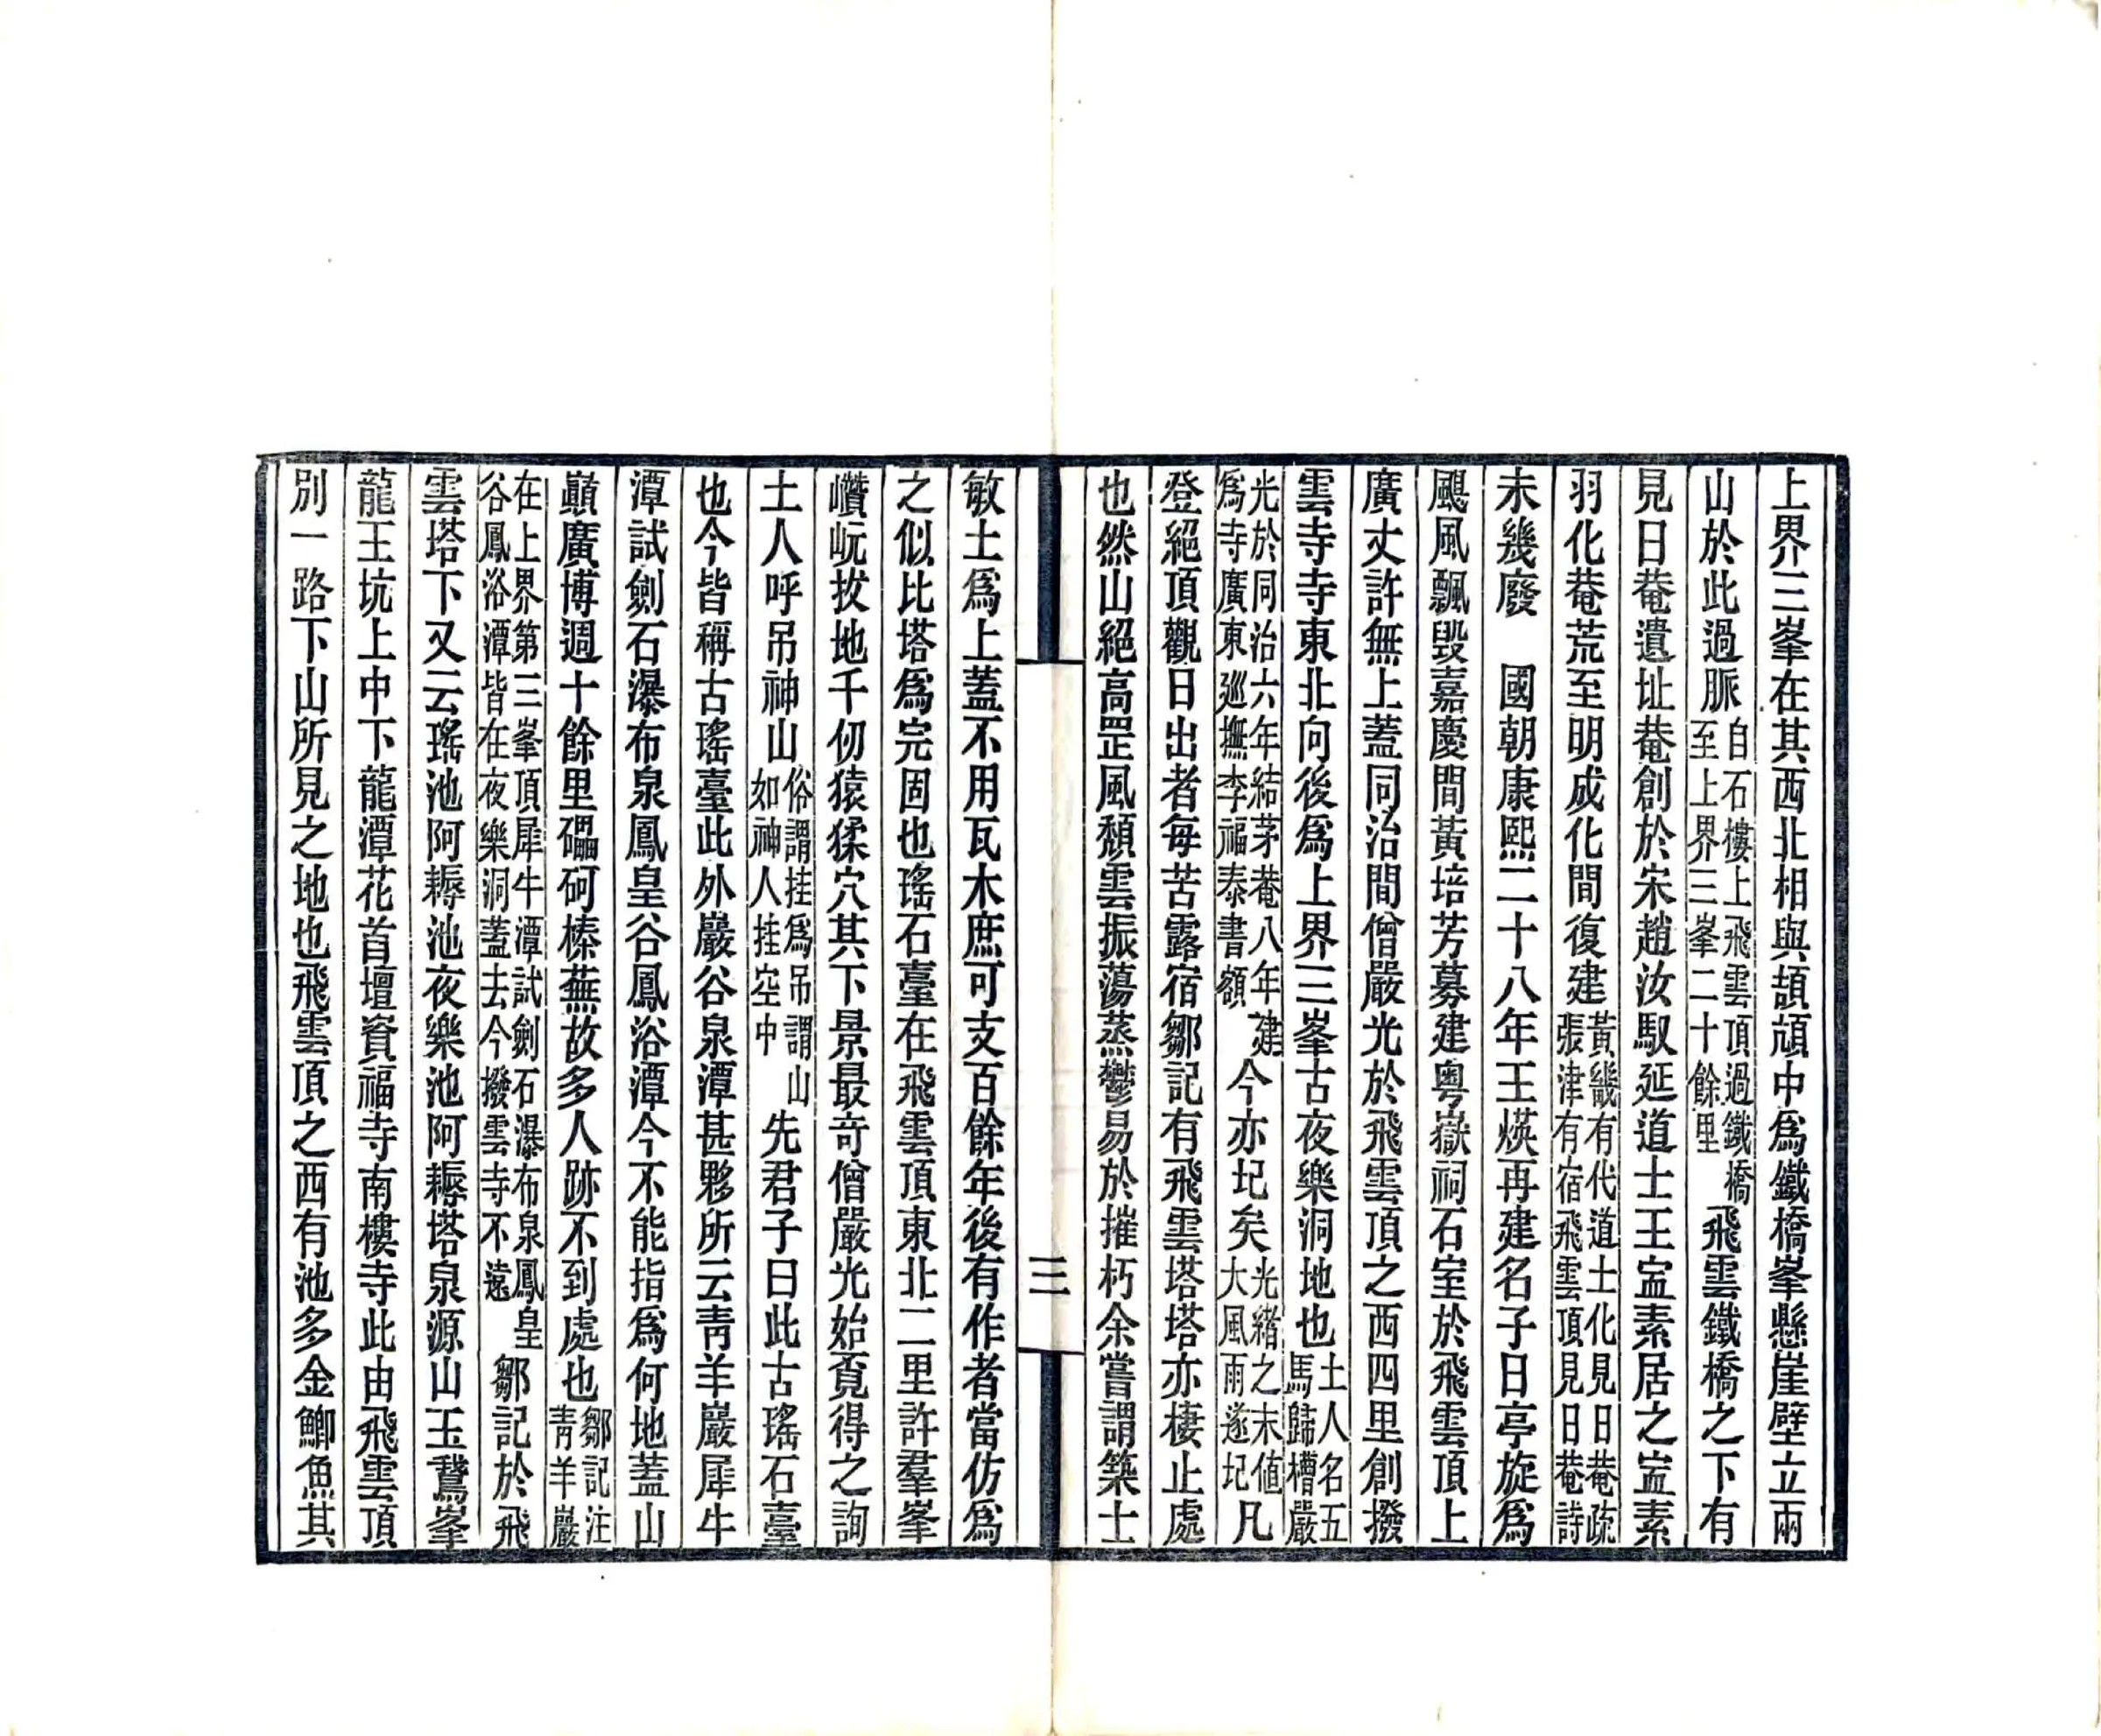 上界三峯在其西北相與頡頏中爲鐵橋峯懸崖壁立兩
山於此過脈自石樓上飛雲頂過鐵橋至上界三峯二十餘里飛雲鐵橋之下有
見日菴遺址菴創於宋趙汝馭延道士王寍素居之寍素
羽化菴荒至明成化間復建黃畿有代道士化見日菴疏張津有宿飛雲頂見日菴詩
未幾廢　國朝康熙二十八年王煐再建名子日亭旋爲
颶風飄毀嘉慶間黃培芳募建粵嶽祠石室於飛雲頂上
廣丈許無上蓋同治間僧嚴光於飛雲頂之西四里創撥
雲寺寺東北向後爲上界三峯古夜樂洞地也土人名五馬歸槽嚴
光於同治六年結茅菴八年建爲寺廣東巡撫李福泰書額今亦圮矣光緒之末值大風雨遂圮凡
登絕頂觀日出者每苦露宿鄒記有飛雲塔塔亦棲止處
也然山絕高罡風頹雲振蕩蒸鬱易於摧朽余嘗謂築土
三
敏土爲上蓋不用瓦木庶可支百餘年後有作者當仿爲
之似比塔爲完固也瑤石臺在飛雲頂東北二里許羣峯
巑岏拔地千仞猿猱穴其下景最奇僧嚴光始覓得之詢
土人呼吊神山俗謂挂爲吊謂山如神人挂空中先君子曰此古瑤石臺
也今皆稱古瑤臺此外巖谷泉潭甚夥所云靑羊巖犀牛
潭試劍石瀑布泉鳳皇谷鳳浴潭今不能指爲何地蓋山
巔廣博週十餘里礧砢榛蕪故多人跡不到處也鄒記注靑羊巖
在上界第三峯頂犀牛潭試劍石瀑布泉鳳皇谷鳳浴潭皆在夜樂洞蓋去今撥雲寺不遠鄒記於飛
雲塔下又云瑤池阿耨池夜樂池阿耨塔泉源山玉鵞峯
龍王坑上中下龍潭花首壇資福寺南樓寺此由飛雲頂
別一路下山所見之地也飛雲頂之西有池多金鯽魚其